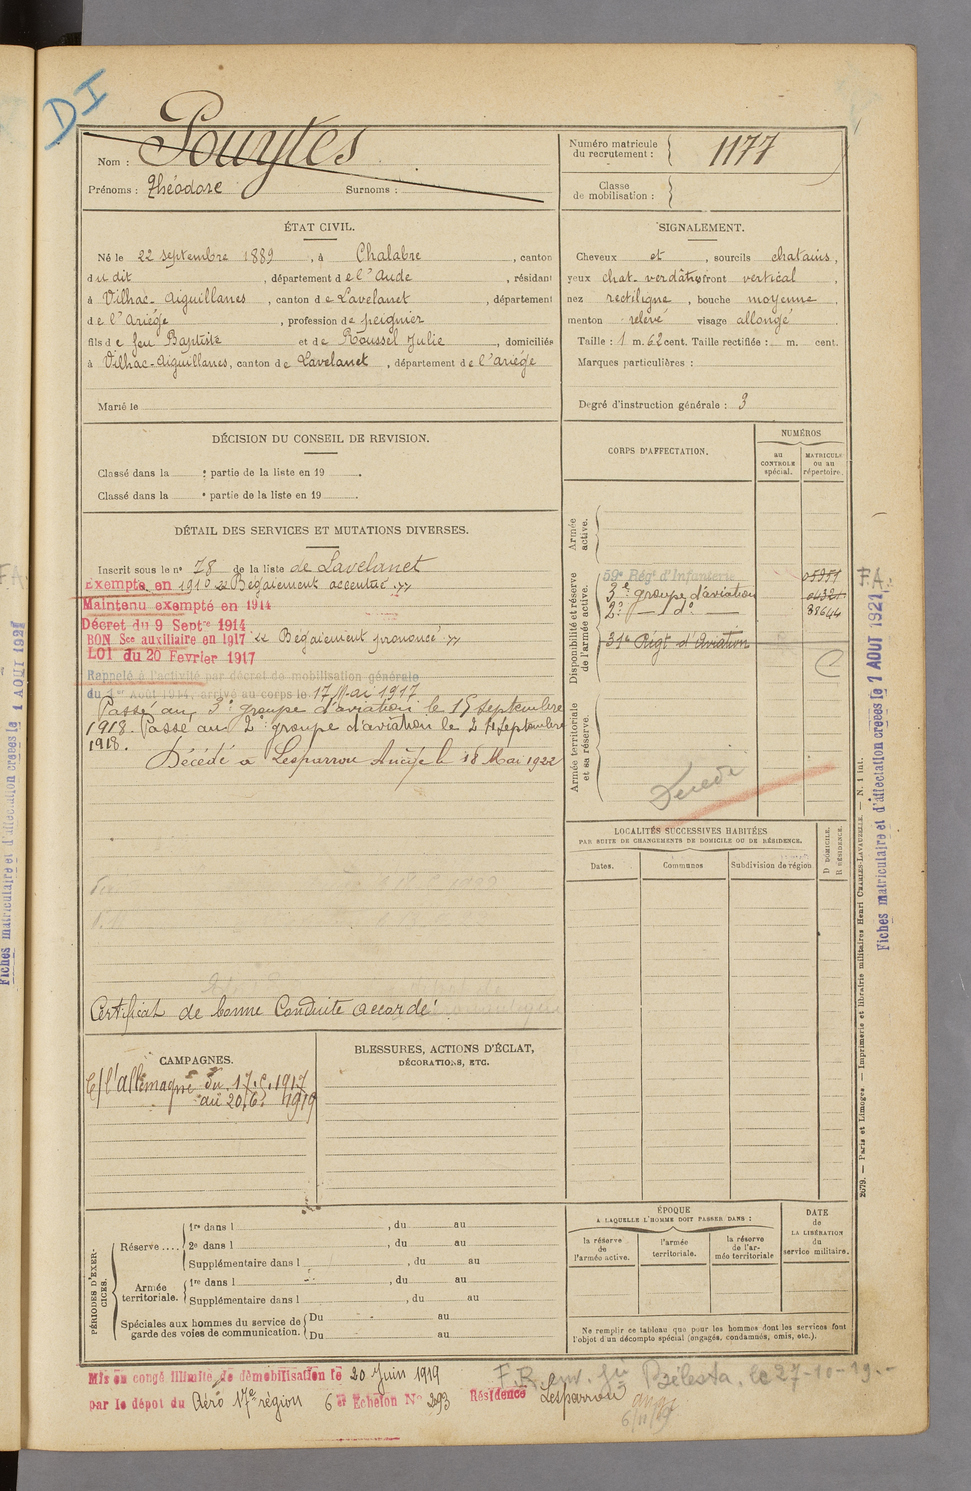 DI
Nom : Pouytes
Prénoms : Théodore Surnoms :
Numéro matricule du recrutement : 1177
Classe de mobilisation :
ÉTAT CIVIL.
Né le 22 septembre 1889, à Chalabre, canton
du dit, département de l'Aude, résidant
à Vilhac-Aiguillanes, canton de Lavelanet, département
de l'Ariège, profession de peignier
fils de feu Baptiste et de Roussel Julie, domiciliés
à Vilhac-Aiguillanes, canton de Lavelanet, département de l'ariège
Marié le
SIGNALEMENT.
Cheveux et, sourcils chatains,
yeux chat. verdâtre front vertical,
nez rectiligne, bouche moyenne,
menton relevé visage allongé.
Taille : 1 m. 62 cent. Taille rectifiée : m. cent.
Marques particulières :
Degré d'instruction générale : 3
DÉCISION DU CONSEIL DE REVISION.
Classé dans la e partie de la liste en 19 .
Classé dans la e partie de la liste en 19 .
DÉTAIL DES SERVICES ET MUTATIONS DIVERSES.
Inscrit sous le no 78 de la liste de Lavelanet
Exempté en 1910 Bégaiement accentué
Maintenu exempté en 1914
Décret du 9 Septre 1914
BON Sce auxiliaire en 1917 Bégaiement prononcé
LOI du 20 Fevrier 1917
Rappelé à l'activité par décret de mobilisation générale
du 1er Août 1914, arrivé au corps le 17 Mai 1917
Passé au 3e groupe d'aviation le 15 septembre
1918. Passé au 2e groupe d'aviation le 24 septembre
1918.
Décédé a Lesparrou Ariège le 18 Mai 1922
Certificat de bonne Conduite accordé.
CORPS D'AFFECTATION.
NUMÉROS
au CONTROLE spécial.
MATRICULE ou au répertoire.
Armée active.
Disponibilité et réserve de l'armée active.
59e Régt d'Infanterie
3e groupe d'aviation
2e — do —
38644
31e Régt d'Aviation
Armée territoriale et sa réserve.
Décédé
LOCALITÉS SUCCESSIVES HABITÉES
PAR SUITE DE CHANGEMENTS DE DOMICILE OU DE RÉSIDENCE.
Dates. Communes Subdivision de région
D DOMICILE.
R RÉSIDENCE.
CAMPAGNES.
C/ l'allemagne du 17.5.1917
au 20.6. 1919
BLESSURES, ACTIONS D'ÉCLAT,
DÉCORATIONS, ETC.
PÉRIODES D'EXERCICES.
Réserve ....
1re dans l , du au
2e dans l , du au
Supplémentaire dans l , du au
Armée territoriale.
1re dans l , du au
Supplémentaire dans l , du au
Spéciales aux hommes du service de garde des voies de communication.
Du au
Du au
ÉPOQUE
A LAQUELLE L'HOMME DOIT PASSER DANS :
la réserve de l'armée active.
l'armée territoriale.
la réserve de l'armée territoriale
DATE de LA LIBÉRATION du service militaire.
Ne remplir ce tableau que pour les hommes dont les services font
l'objet d'un décompte spécial (engagés, condamnés, omis, etc.).
Mis en congé illimité de démobilisation le 20 Juin 1919
par le dépôt du Aéro 17e région 6e Echelon No 293 Résidence Lesparrou
F.R. env. Bélesta, le 27-10-19.-
6/11/19
2679. — Paris et Limoges — Imprimerie et librairie militaires Henri CHARLES-LAVAUZELLE. — N. 1 int.
F.A.
Fiches matriculaire et d'affectation créées le 1 AOUT 1921
F.A.
Fiches matriculaire et d'affectation créées le 1 AOUT 1921